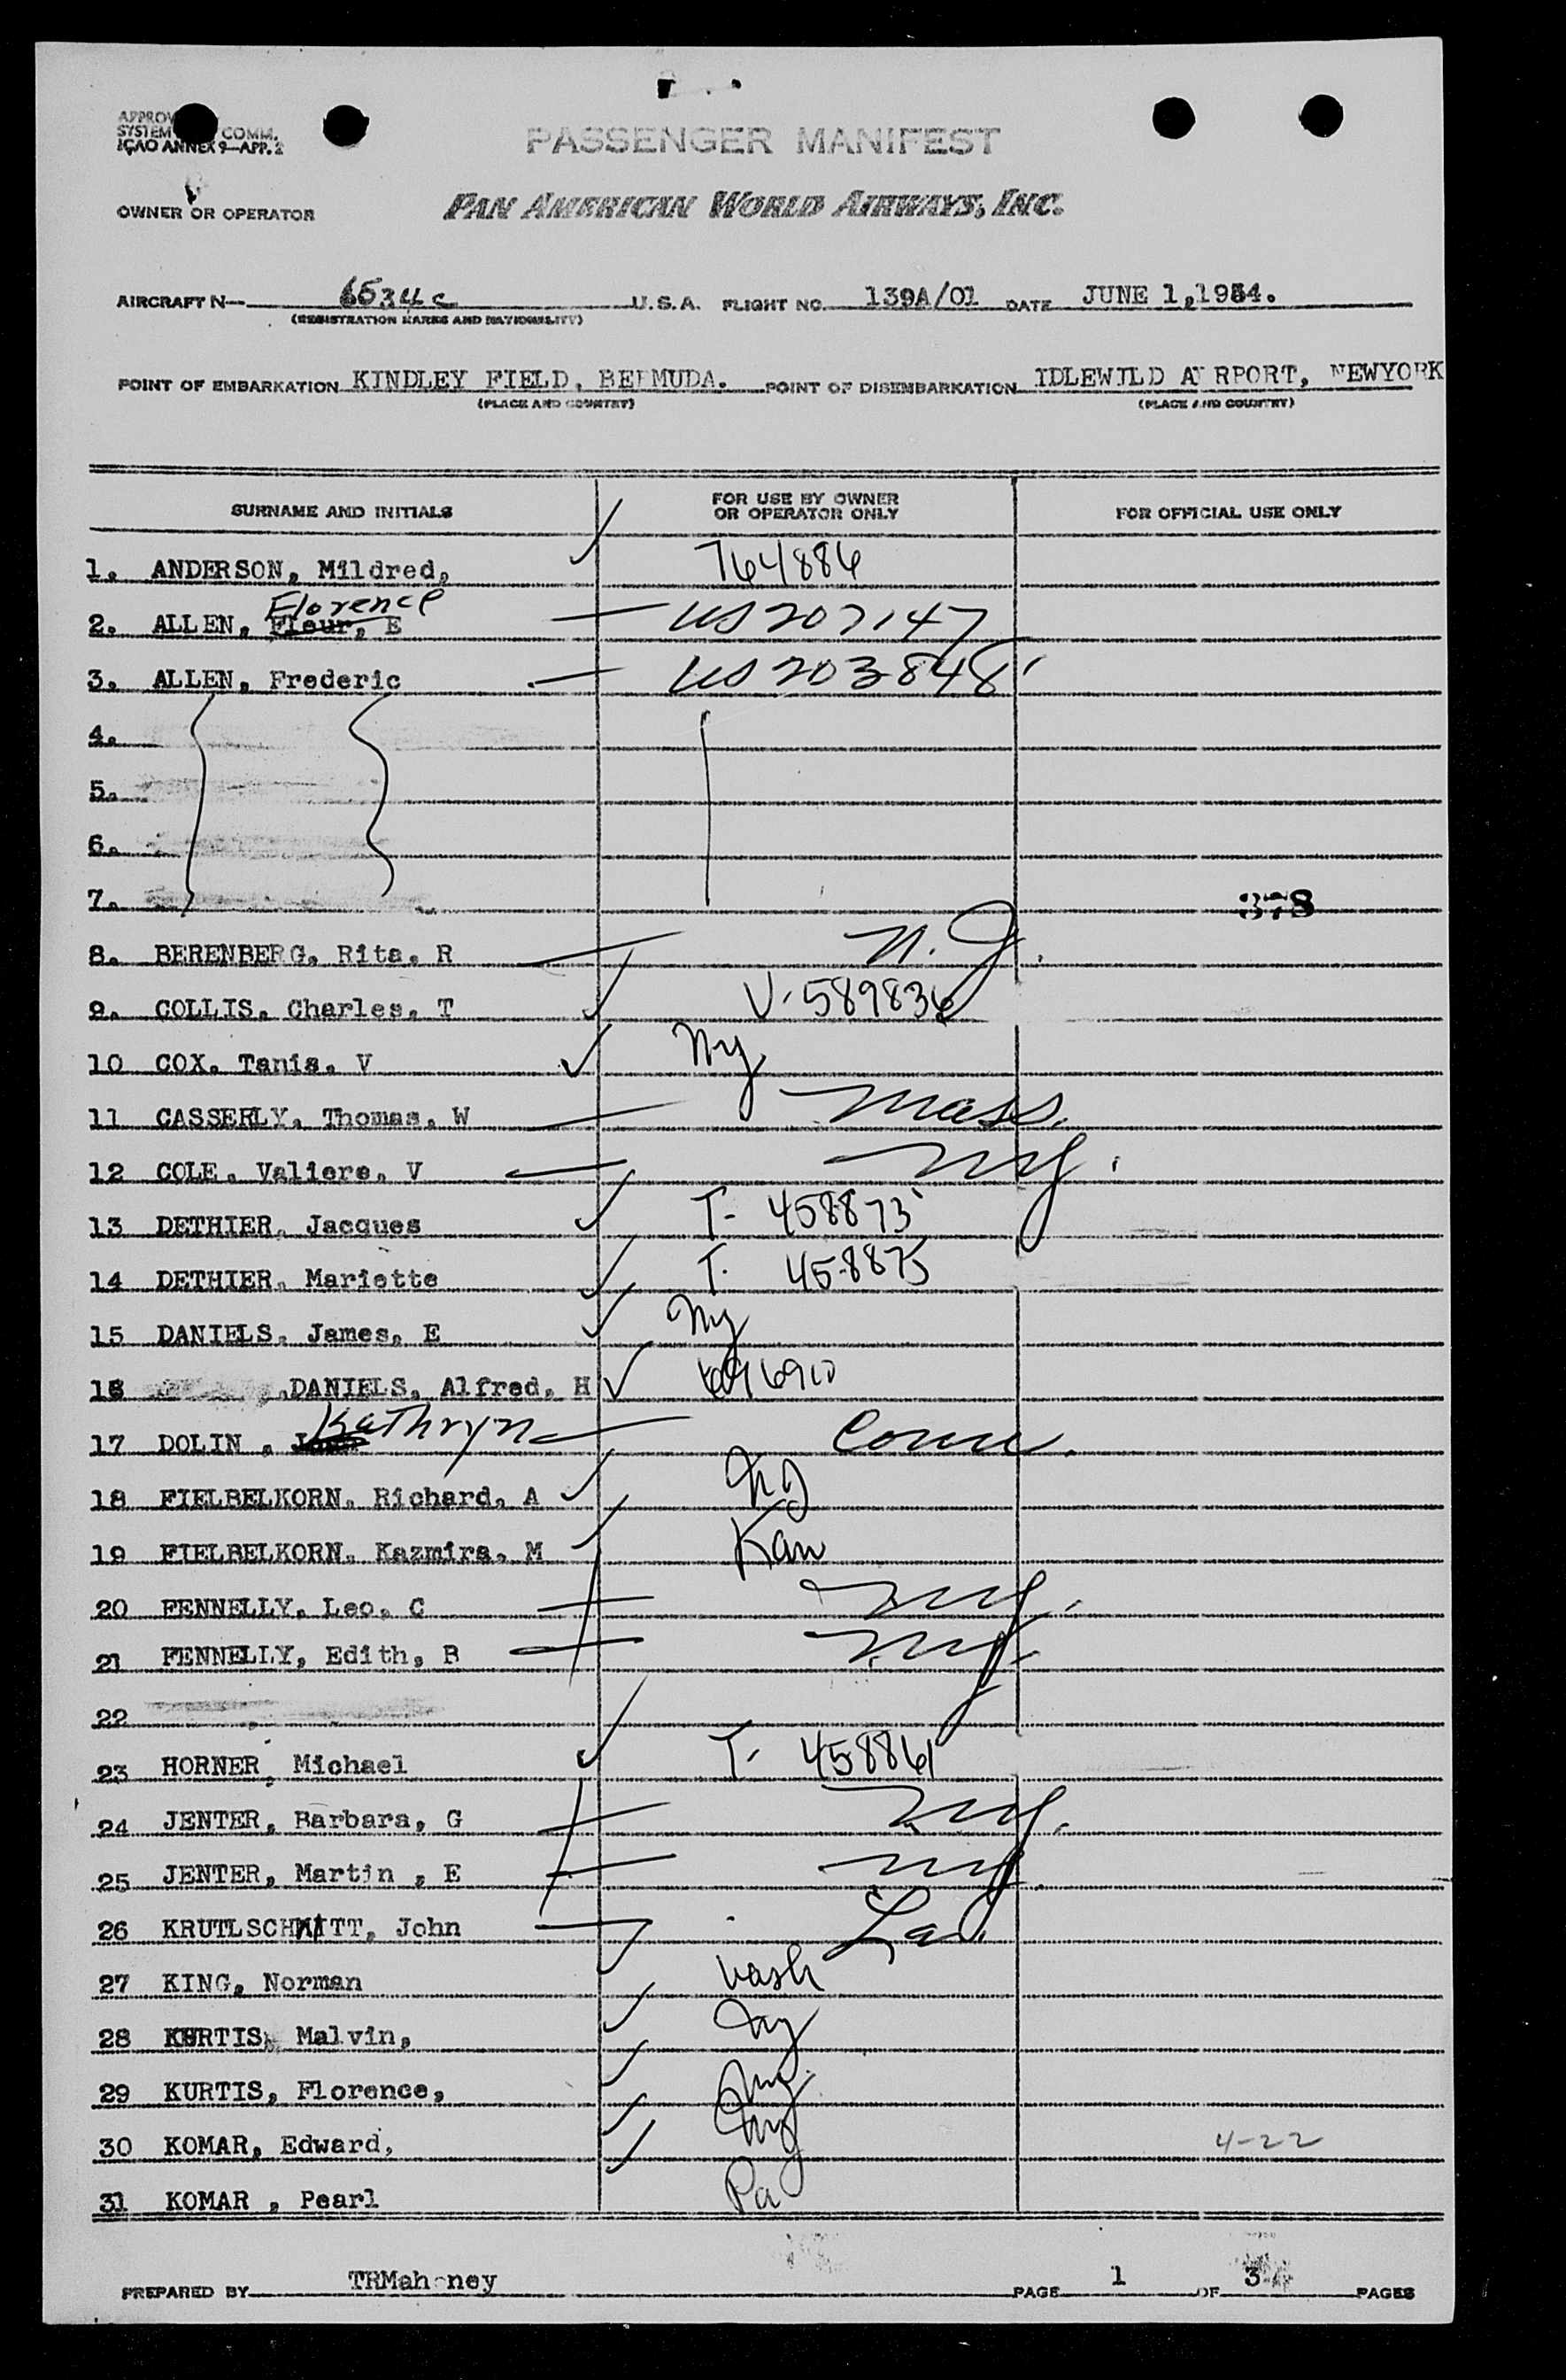 APPROV
SYSTEM COMM.
ICAO ANNEX 9—APP. 2
PASSENGER MANIFEST
OWNER OR OPERATOR PAN AMERICAN WORLD AIRWAYS, INC.
AIRCRAFT N— 6534c U.S.A. FLIGHT NO. 139A/01 DATE JUNE 1,1954.
(REGISTRATION MARKS AND NATIONALITY)
POINT OF EMBARKATION KINDLEY FIELD, BERMUDA. POINT OF DISEMBARKATION IDLEWILD AIRPORT, NEWYORK
(PLACE AND COUNTRY) (PLACE AND COUNTRY)
SURNAME AND INITIALS FOR USE BY OWNER OR OPERATOR ONLY FOR OFFICIAL USE ONLY
1. ANDERSON, Mildred, 764886
Florence
2. ALLEN, Fleur, E US 207147
3. ALLEN, Frederic US 203848
4.
5.
6.
7. 378
8. BERENBERG, Rita, R N.J.
9. COLLIS, Charles, T V-589836
10 COX, Tanis, V Ny
11 CASSERLY, Thomas, W Mass.
12 COLE, Valiere, V NY.
13 DETHIER, Jacques T- 458873
14 DETHIER, Mariette T- 458875
15 DANIELS, James, E Ny
16 DANIELS, Alfred, H 696910
17 DOLIN, Kathryn Conn.
18 FIELBELKORN, Richard, A NJ
19 FIELBELKORN, Kazmira, M Kan
20 FENNELLY, Leo, C NY.
21 FENNELLY, Edith, B NY.
22
23 HORNER, Michael T- 458861
24 JENTER, Barbara, G NY.
25 JENTER, Martin , E NY.
26 KRUTLSCHNITT, John La.
27 KING, Norman Wash
28 KURTIS, Malvin, Ny
29 KURTIS, Florence, Ny.
30 KOMAR, Edward, Ny 4-22
31 KOMAR , Pearl Pa
PREPARED BY TRMahoney PAGE 1 OF 3 PAGES